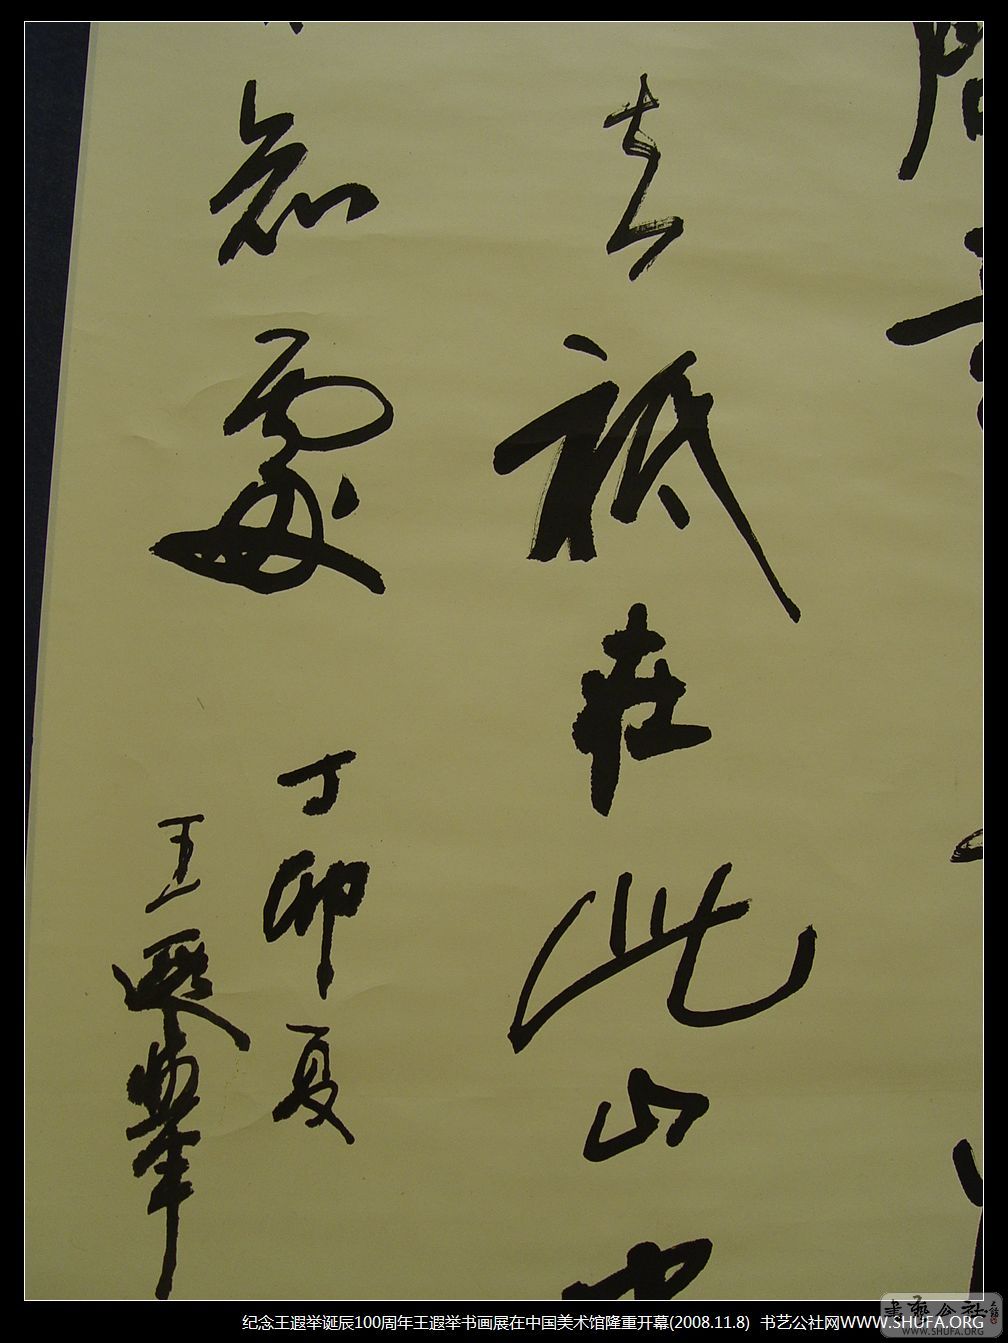 去祗在此山中
知處
丁卯夏
王遐舉
纪念王遐举诞辰100周年王遐举书画展在中国美术馆隆重开幕(2008.11.8) 书艺公社网WWW.SHUFA.ORG
書藝公社
WWW.SHUFA.ORG